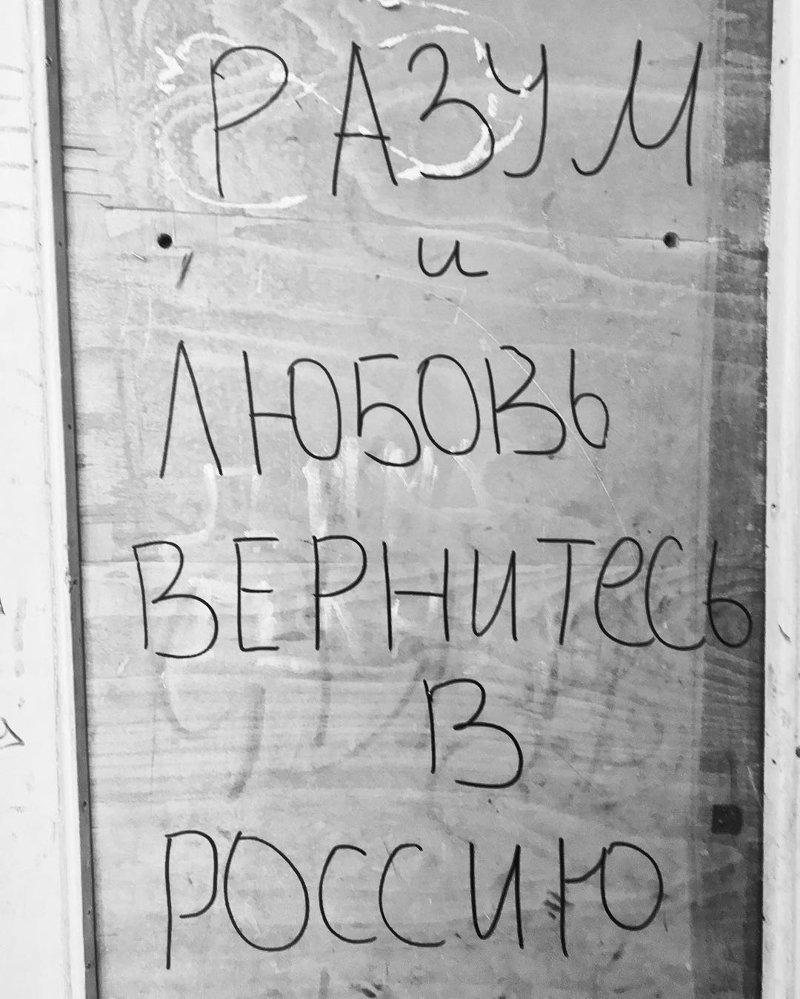 РАЗУМ
и
ЛЮБОВЬ
ВЕРНИТеСЬ
В
РОССИЮ